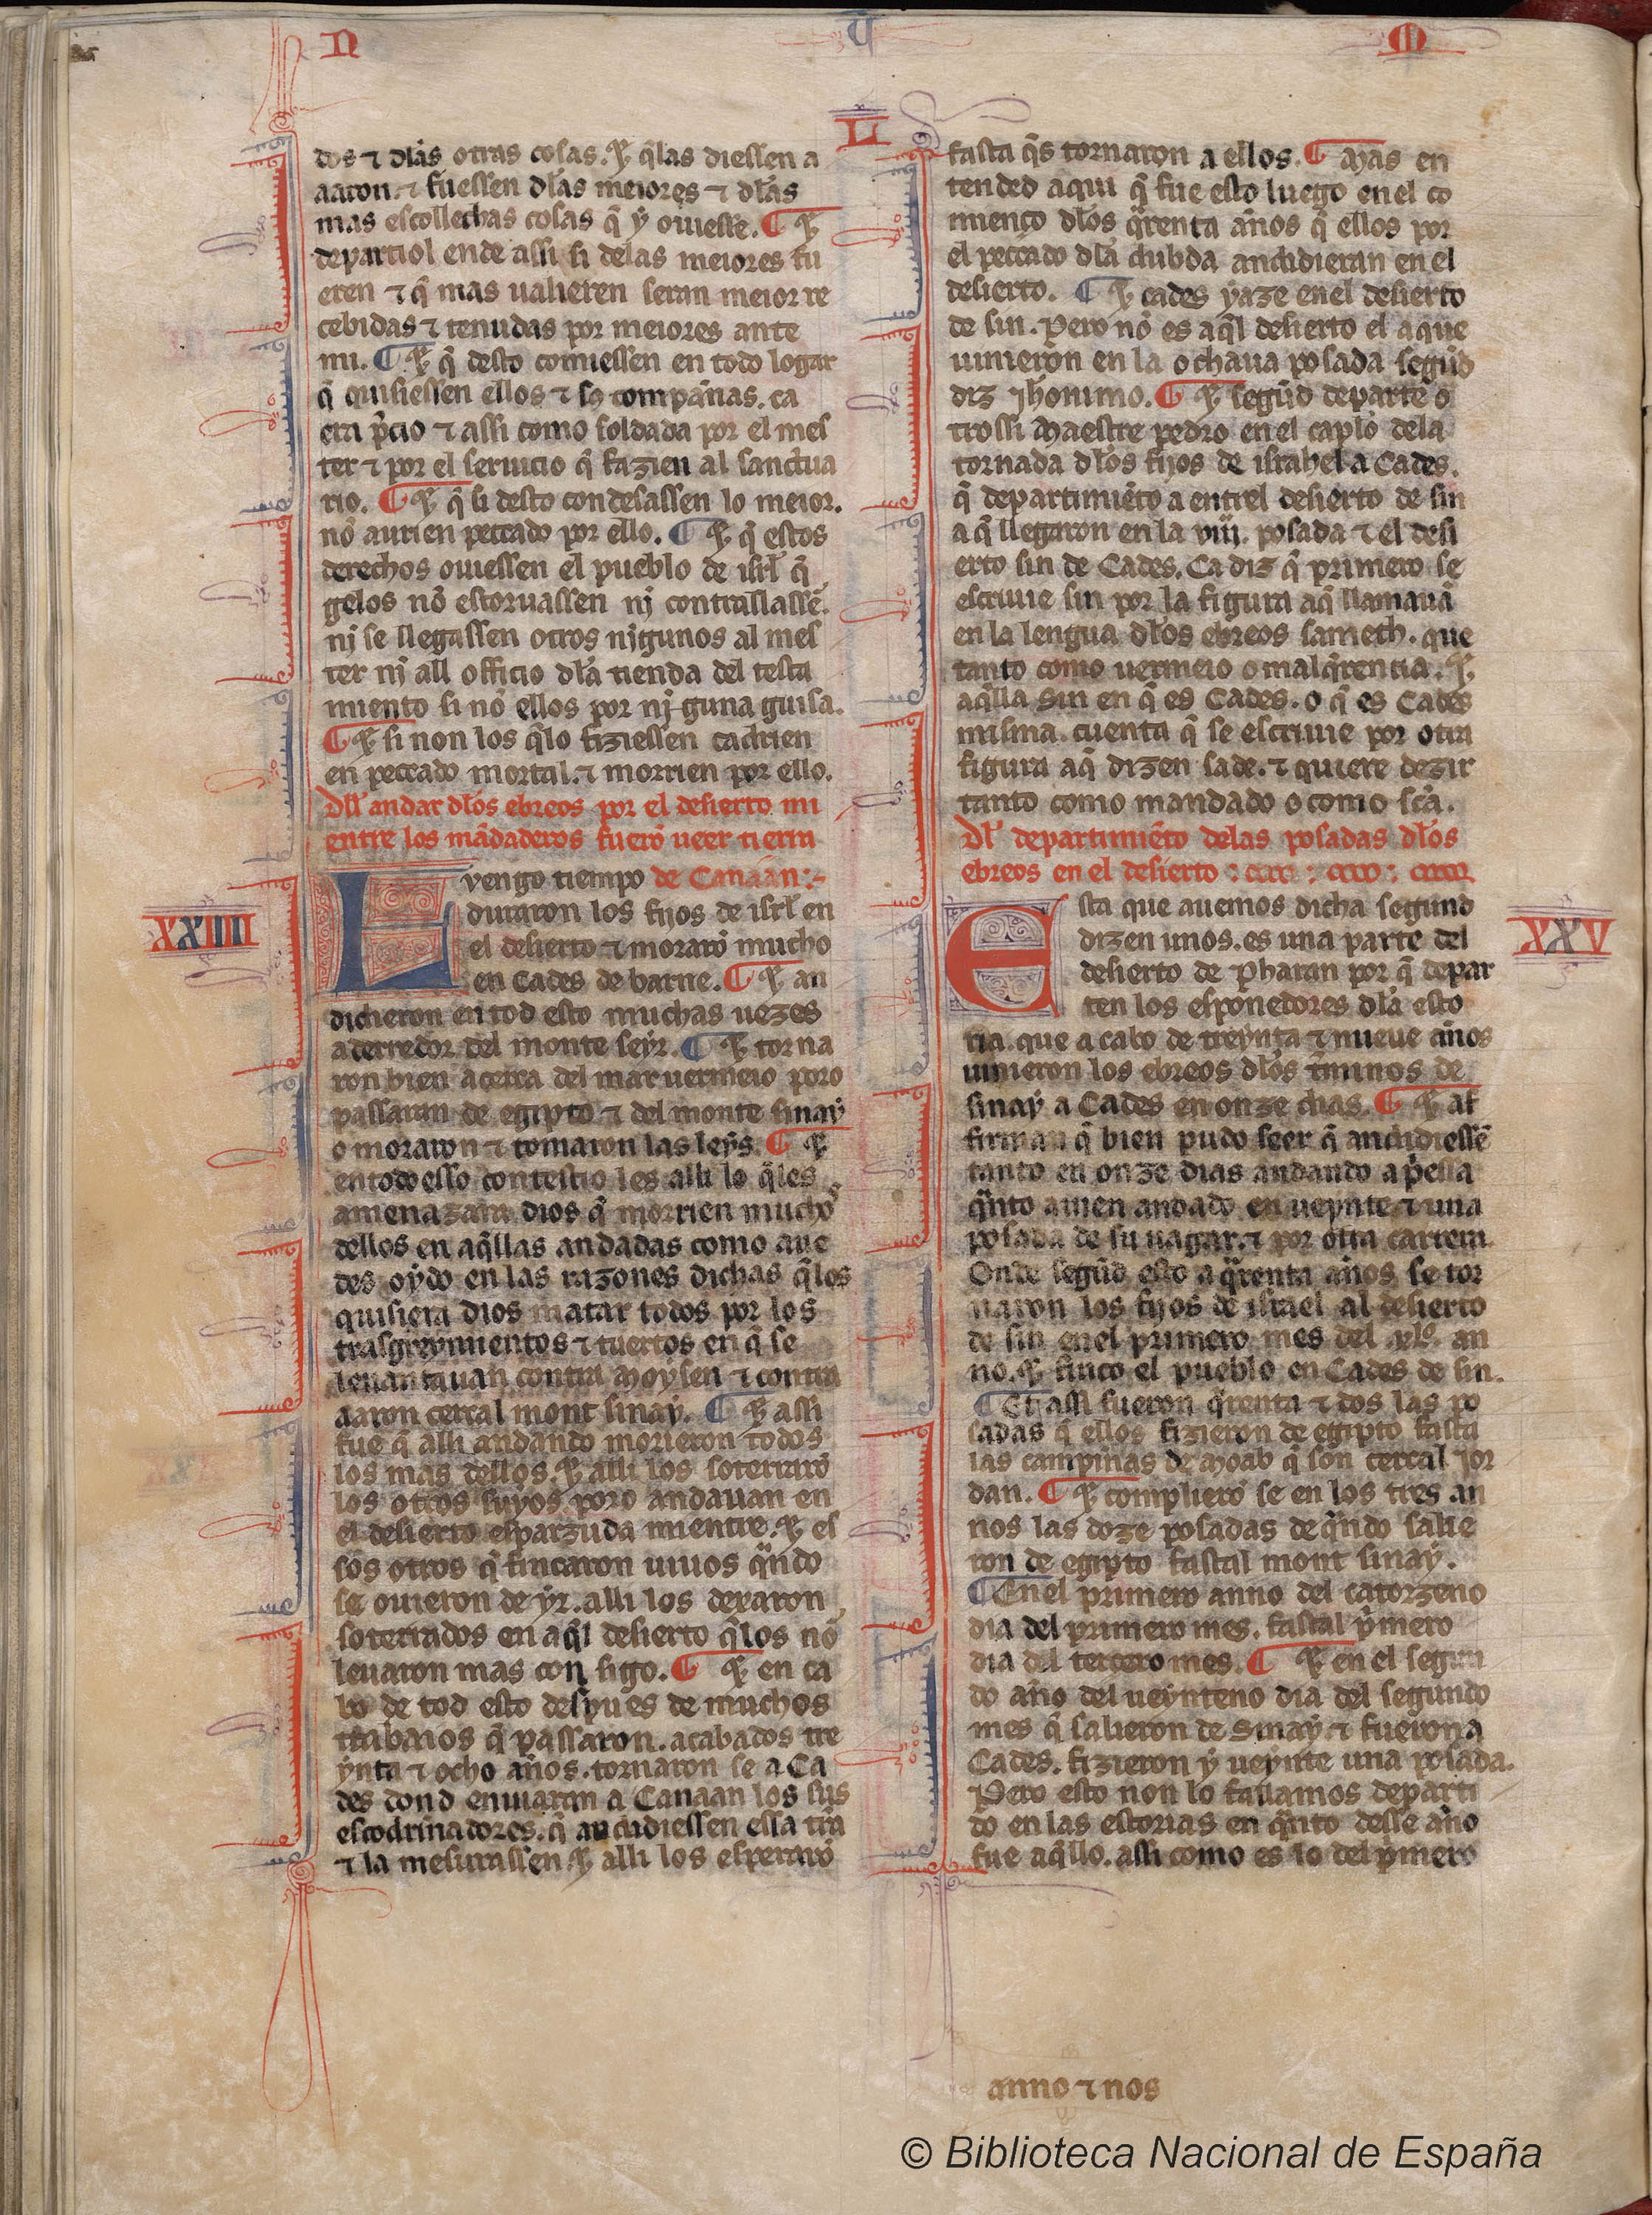 N U M
LI
dos ⁊ dłas otras cosas. ⁊ q̃las diessen a
aaron. ⁊ fuessen dłas meiores ⁊ dłas
mas escollechas cosas q̃ y ouiesse. ¶ ⁊
departiol ende assi si delas meiores fu
eren ⁊ q̃ mas ualieren seran meior re
cebidas ⁊ tenudas por meiores ante
mi. ¶ ⁊ q̃ desto comiessen en todo logar
q̃ quisiessen ellos ⁊ sꝯ compan̄as. ca
era p̃cio ⁊ assi como soldada por el mes
ter ⁊ por el seruicio q̃ fazien al sanctua
rio. ¶ ⁊ q̃ si desto condesassen lo meior.
nō aurien peccado por ello. ¶ ⁊ q̃ estos
derechos ouiessen el pueblo de isrł q̃
gelos nō estoruassen nj contrallassē.
nj se llegassen otros njgunos al mes
ter nj all officio dła tienda del testa
miento si nō ellos por nj guna guisa.
¶ ⁊ si non los q̃lo fiziessen cadrien
en peccado mortal. ⁊ morrien por ello.
Dłl andar dłos ebreos por el desierto mi
entre los mādaderos fuerō ueer tierra
de Canaan:-
XXIIII
Luengo tiempo
duraron los fijos de isrł en
el desierto ⁊ morarō mucho
en Cades de barne. ¶ ⁊ an
didieron en tod esto muchas uezes
aderredor del monte seyr. ¶ ⁊ torna
ron bien acerca del mar uermeio poro
passaran de egipto ⁊ del monte sinay
o moraron ⁊ tomaron las leys. ¶ ⁊
en todo esso contescio les alli lo q̃les
amenazara dios q̃ morrien muchos
dellos en aq̃llas andadas como aue
des oydo en las razones dichas q̃los
quisiera dios matar todos por los
trasgreymientos ⁊ tuertos en q̃ se
leuantauan contra Moysen ⁊ contra
aaron cercal mont sinay. ¶ ⁊ assi
fue q̃ alli andando morieron todos
los mas dellos. ⁊ alli los soterrarō
los otros suyos poro andauan en
el desierto esparzuda mientre. ⁊ es
sos otros q̃ fincaron uiuos q̃ndo
se ouieron de yr. alli los dexaron
soterrados en aq̃l desierto q̃los nō
leuaron mas con sigo. ¶ ⁊ en ca
bo de tod esto despues de muchos
trabaios q̃ passaron. acabados tre
ynta ⁊ ocho an̄os. tornaron se a Ca
des dond enuiaran a Canaan los sus
escodrinadores. q̃ andidiessen essa trr̃a
⁊ la mesurassen. ⁊ alli los esperarō
fasta q̃s tornaron a ellos. ¶ Mas en
tended aqui q̃ fue esto luego en el co
mienço dłos q̃renta an̄os q̃ ellos por
el peccado dła dubda andidieran en el
desierto. ¶ ⁊ cades yaze en el desierto
de sin. Pero nō es aq̃l desierto el a que
uinieron en la ochaua posada segūd
diz Jhonimo. ¶ ⁊ segūd departe o
trossi Maestre pedro en el capło dela
tornada dłos fijos de israhel a Cades.
q̃ departimiēto a entrel desierto de sin
a q̃ llegaron en la viij. posada ⁊ el desi
erto sin de Cades. Ca diz q̃ primero se
escriue sin por la figura aq̃ llamauā
en la lengua dłos ebreos sameth. que
tanto como uermeio o malq̃rencia. ⁊
aq̃lla sin en q̃ es Cades. o q̃ es Cades
misma. cuenta q̃ se escriue por otra
figura aq̃ dizen sade. ⁊ quiere dezir
tanto como mandado o como sc̃a.
Dł departimiēto delas posadas dłos
ebreos en el desierto:
XXV
Esta que auemos dicha segund
dizen unos. es una parte del
desierto de Pharan por q̃ depar
ten los esponedores dła esto
ria. que a cabo de treynta ⁊ nueue an̄os
uinieron los ebreos dłos t̃minos de
sinay a Cades en onze dias. ¶ ⁊ af
firman q̃ bien pudo seer q̃ andidiessē
tanto en onze dias andando a p̃essa
q̃nto auien andado en ueynte ⁊ una
posada de su uagar. ⁊ por otra carrera
Onde segūd esto a q̃renta an̄os se tor
naron los fijos de israel al desierto
de sin en el primero mes del .xl°. an
no. ⁊ finco el pueblo en Cades de sin.
¶ Et assi fueron q̃renta ⁊ dos las po
sadas q̃ ellos fizieron de egipto fasta
las campinas de Moab q̃ son cercal Jor
dan. ¶ ⁊ complierō se en los tres an
nos las doze posadas de q̃ndo salie
ron de egipto fastal mont sinay.
¶ En el primero anno del catorzeno
dia del primero mes. fastal p̃mero
dia del tercero mes. ¶ ⁊ en el segun
do an̄o del ueynteno dia del segundo
mes q̃ salieron de Sinay. ⁊ fueron a
Cades. fizieron y ueynte una posada.
Pero esto non lo fallamos departi
do en las estorias en q̃nto desse an̄o
fue aq̃llo. assi como es lo del p̃mero
anno ⁊ nos
© Biblioteca Nacional de España